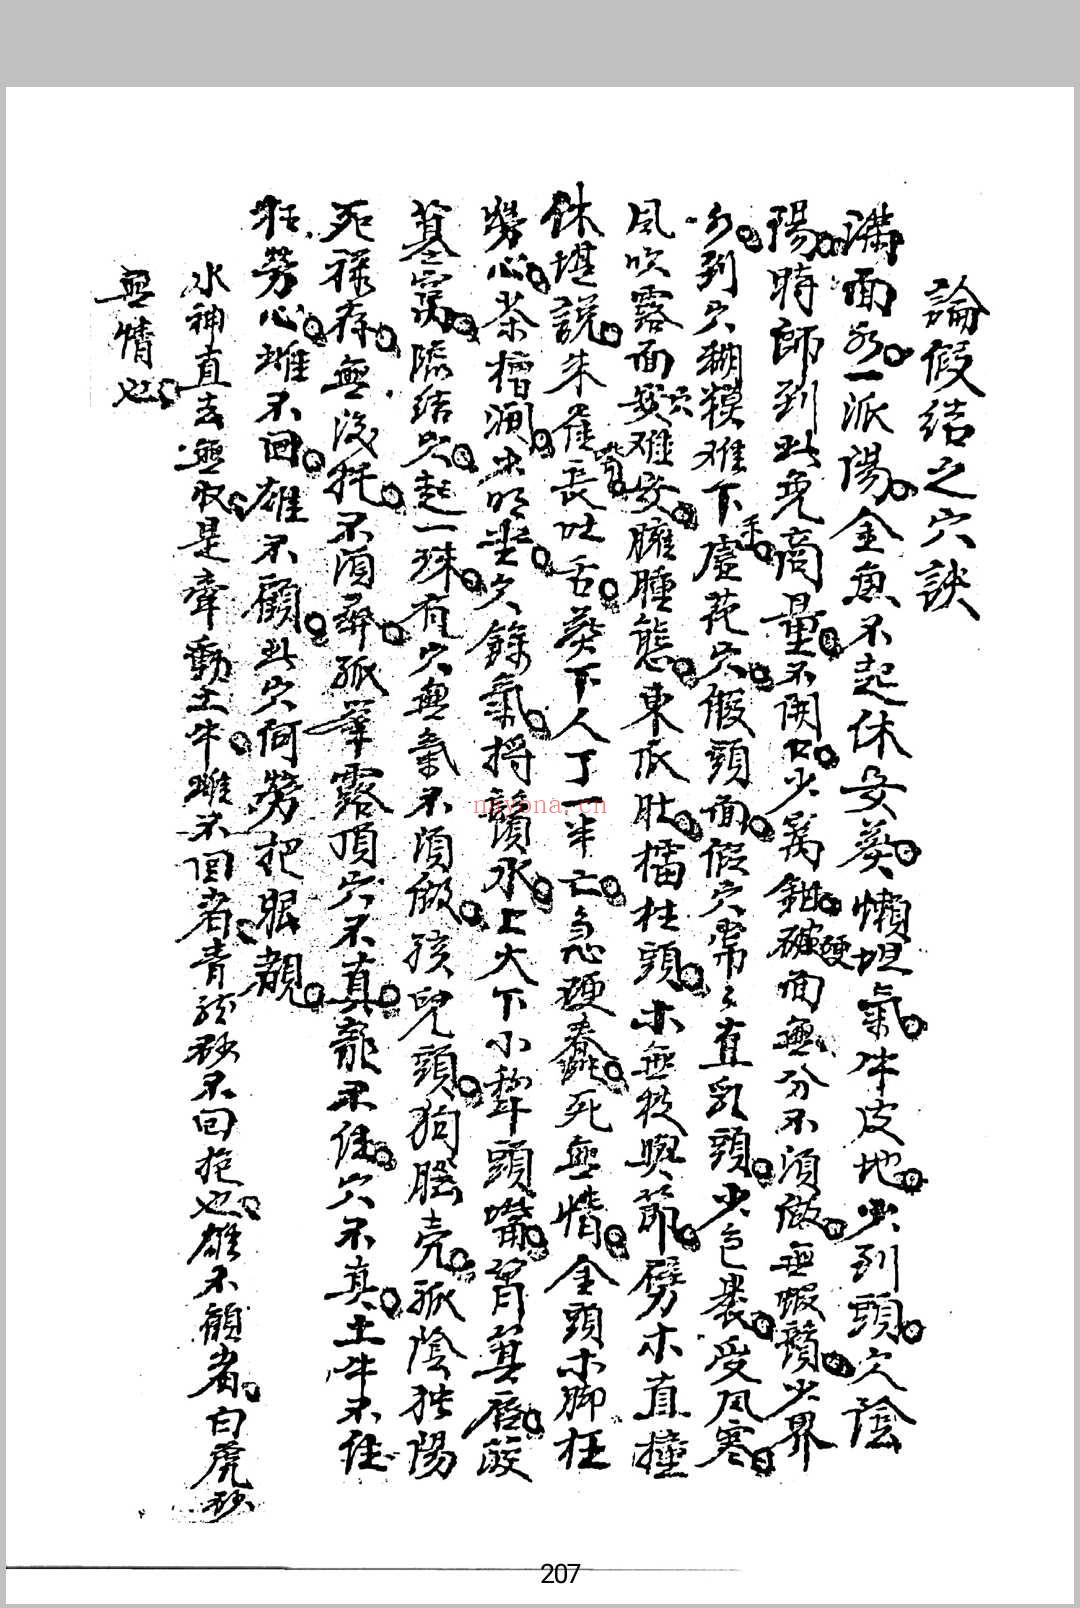 論假結之穴訣
滿面水一派陽金魚不起休安葬懶坦氣牛皮地少到頭穴陰
陽時師到此免商量不開口少葛鉗破硬面無分不須做無蝦鬚少界
水到穴糊糢难下手虛花穴假頭面假穴常々直乳頭少包裹受風寒
風吹露面穴难安臃腫態東瓜肚擂柱頭木無枝與節劈木直撞
休堪説朱雀長吐舌葬下人丁一半亡急硬麤死無情金頭木脚枉
勞心茶槽澗出唇尖餘氣捋鬚水上大下小犂頭嘴箕唇
墓窩臨結穴起一珠有穴無氣不須做孩兒頭狗腦壳孤陰独陽
死祿存無没托不須尋孤單露頂穴不真龍不住穴不真土牛不住
枉勞心雌不回雄不顧此穴何勞把眼覩
水神直去無收是牽動土牛雌不回者青龍砂不回抱也雄不顧者白虎砂
無情也
207
nayona.cn